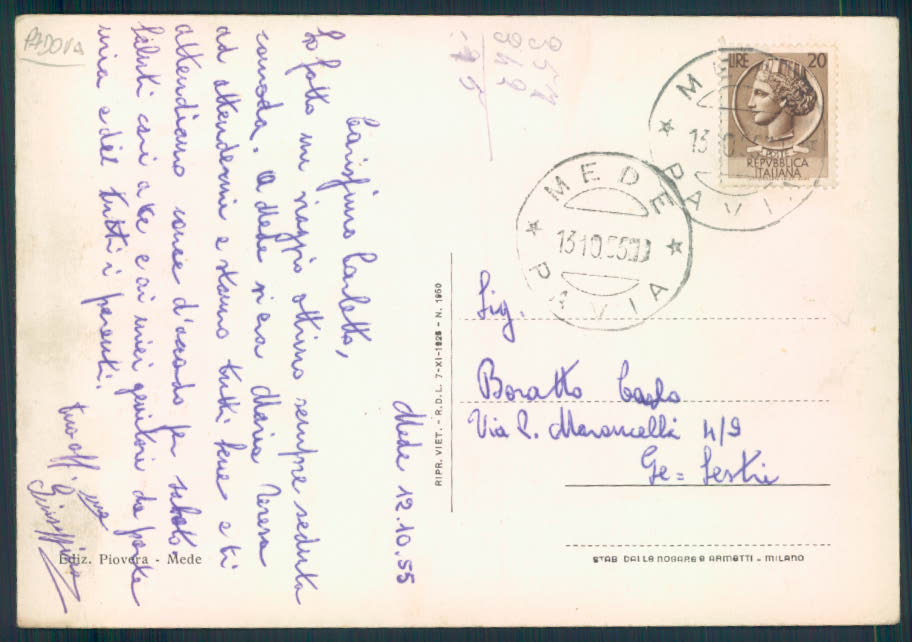 PADOVA
Mede 12.10.55
Carissimo Carletto,
ho fatto un viaggio ottimo sempre seduta
comoda. A Mede vi era Maria Teresa
ad attendermi e stanno tutti bene e ti
attendiamo come d'accordo per sabato,
Saluti cari a te e ai miei genitori da parte
mia e di tutti i parenti.
tua aff.ma
Giuseppina
Ediz. Piovera - Mede
RIPR. VIET. - R.D.L. 7-XI-1925 - N. 1950
LIRE 20
POSTE
REPVBBLICA
ITALIANA
MEDE
PAVIA
MEDE
13 10 55
PAVIA
Sig.
Boratto Carlo
Via P. Maroncelli 4/9
Ge = Sestri
STAB DALLE NOGARE E ARMETTI - MILANO